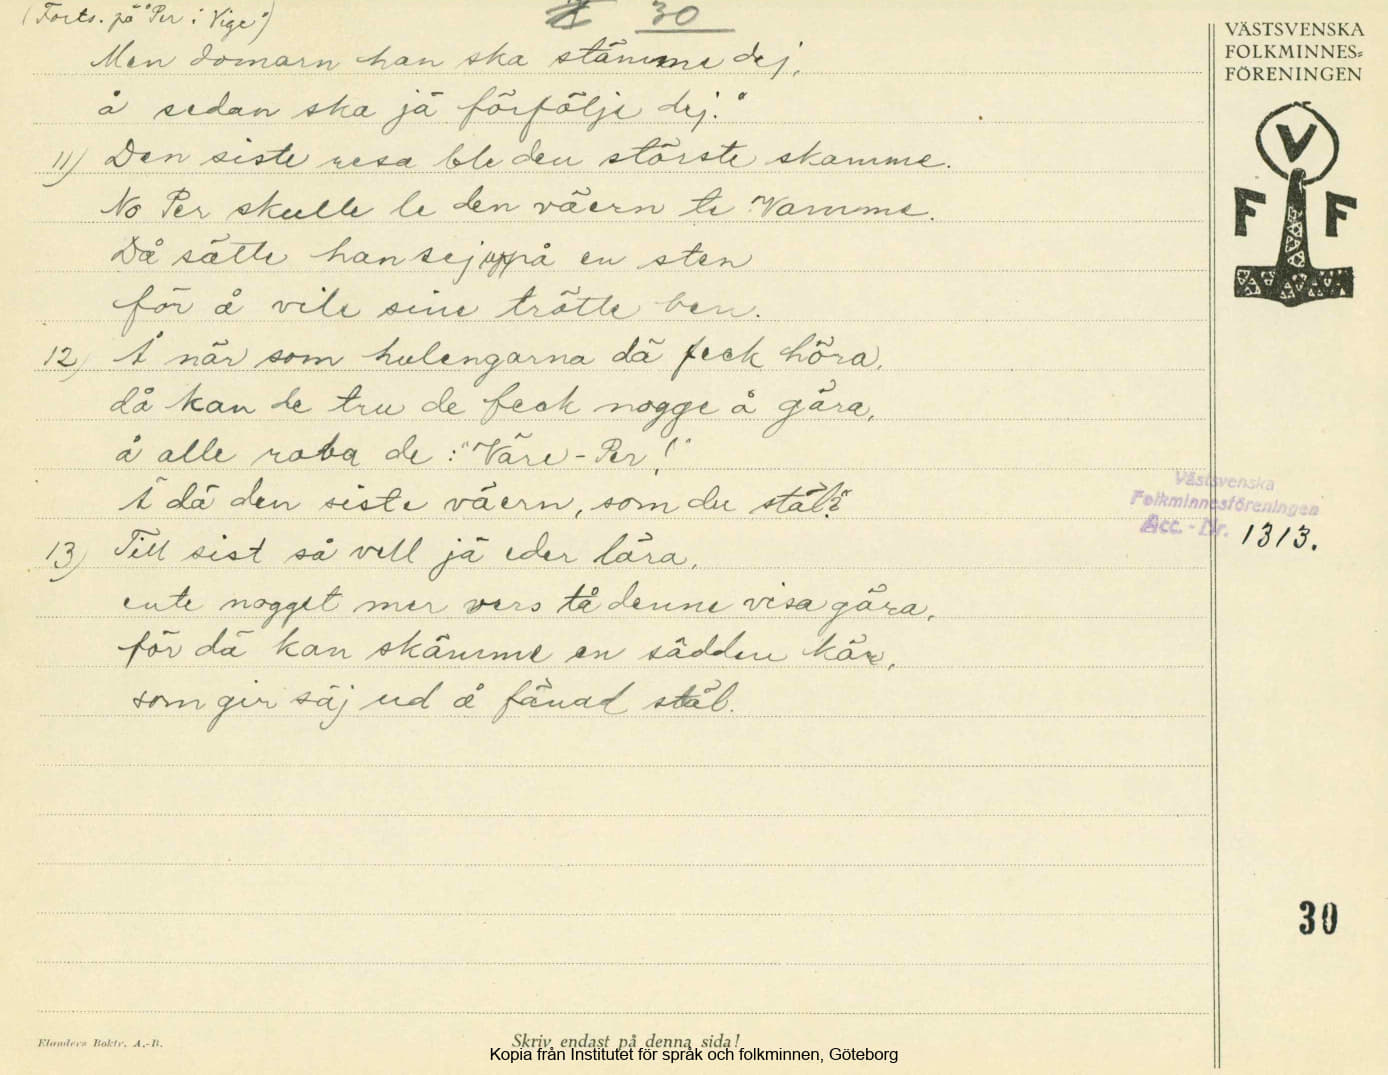 (Forts. på "Per i Vige")
30
Men domarn han ska stämme dej,
å sedan ska jä förfölje dej."
11) Den siste resa ble den störste skamme.
No Per skulle le den väern te Vamme.
Då sätte han sej uppå en sten
för å vile sine trötte ben.
12) Å när som hulengarna dä feck höra,
då kan de tru de feck nogge å gära,
å alle roba de: "Väre-Per!"
Ä dä den siste väern, som du stäl?"
13) Till sist så vell jä eder lära,
ente nogget mer vers tå denne visa gära,
för dä kan skämme en sädden kär,
som gir säj ud å fänad stäl.
VÄSTSVENSKA
FOLKMINNES-
FÖRENINGEN
V
F F
Västsvenska
Folkminnesföreningen
Acc. - Nr. 1313.
30
Elanders Boktr. A.-B.
Skriv endast på denna sida!
Kopia från Institutet för språk och folkminnen, Göteborg